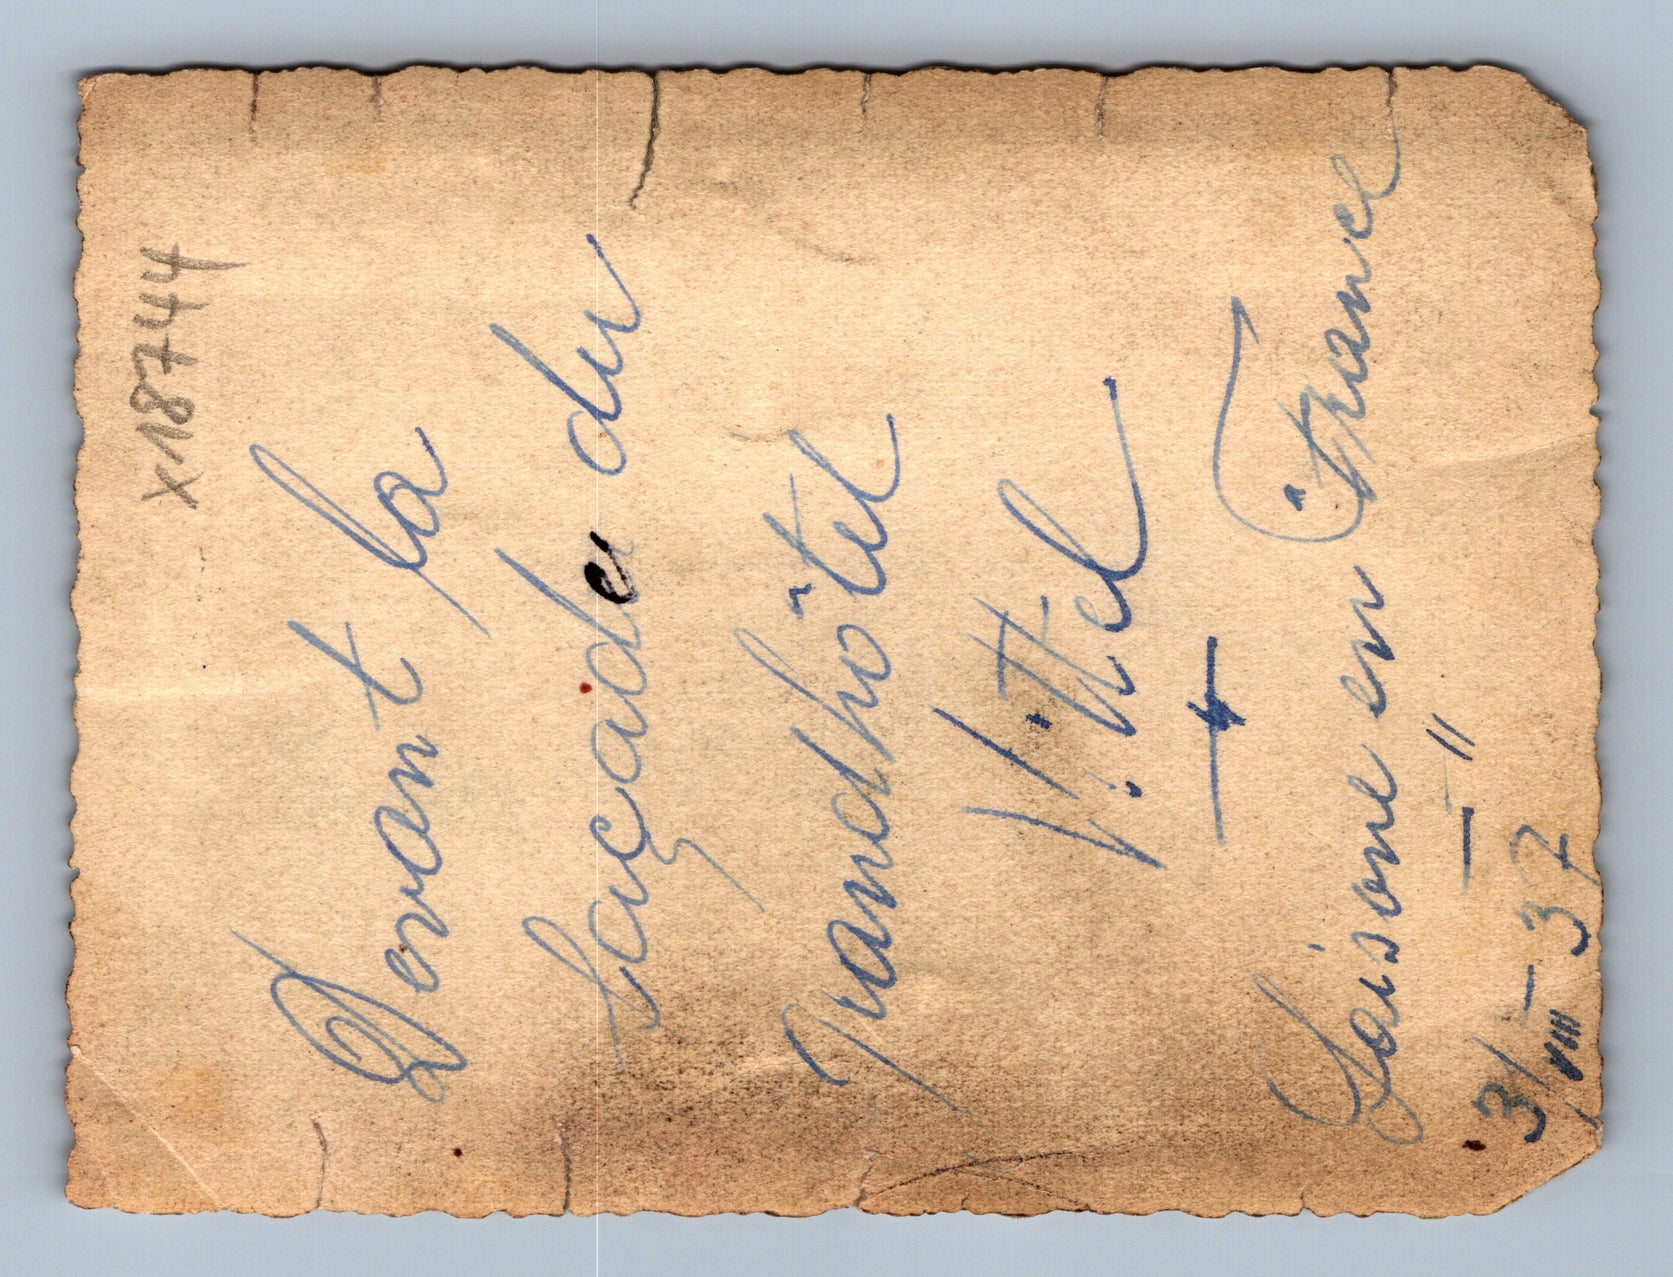 x18744
Devant la
façade du
grandhôtel
Vittel
Saisone en France
31/VIII - 37